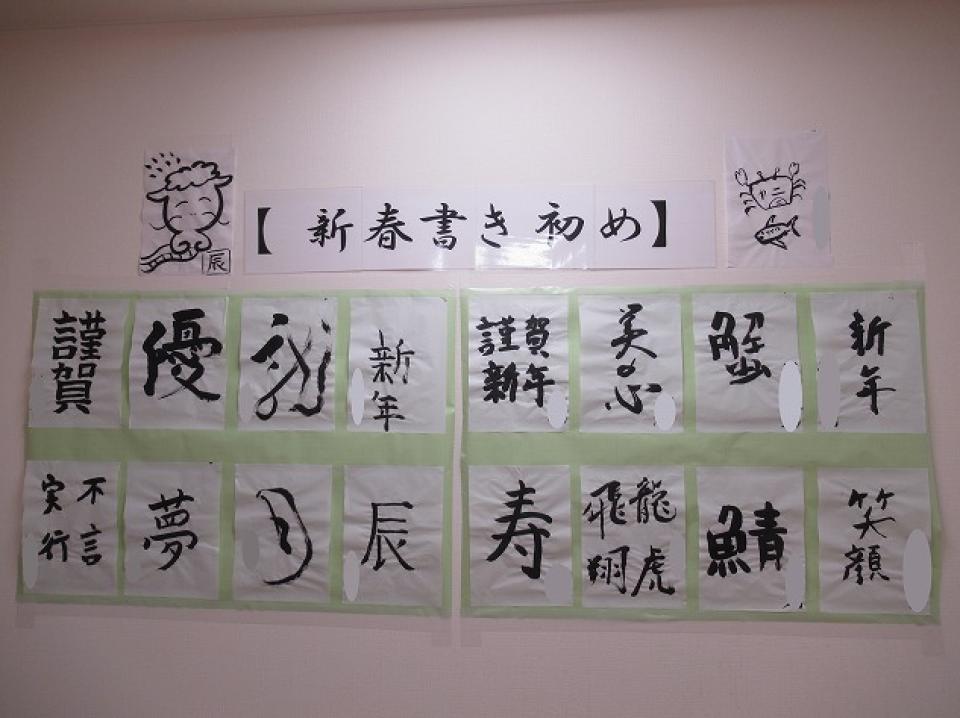 【新春書き初め】
辰
謹賀
優
新年
謹賀
新年
美の心
蟹
新年
不言
実行
夢
辰
寿
龍虎
飛翔
鯖
笑顔